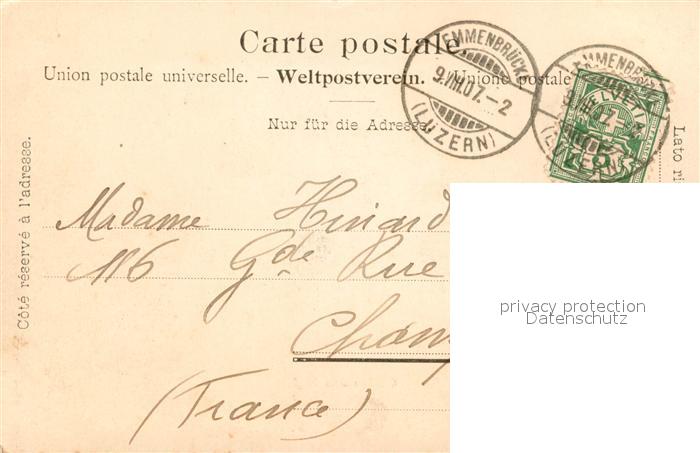 Carte postale.
Union postale universelle. — Weltpostverein. — Unione postale
Nur für die Adresse.
EMMENBRÜCKE
9.VIII.07.-2
(LUZERN)
EMMENBRÜCKE
(LUZERN)
HELVETIA
5
Côté réservé à l'adresse.
Lato ri
Madame Hinard
116 Gde Rue
Cham
(France)
privacy protection
Datenschutz